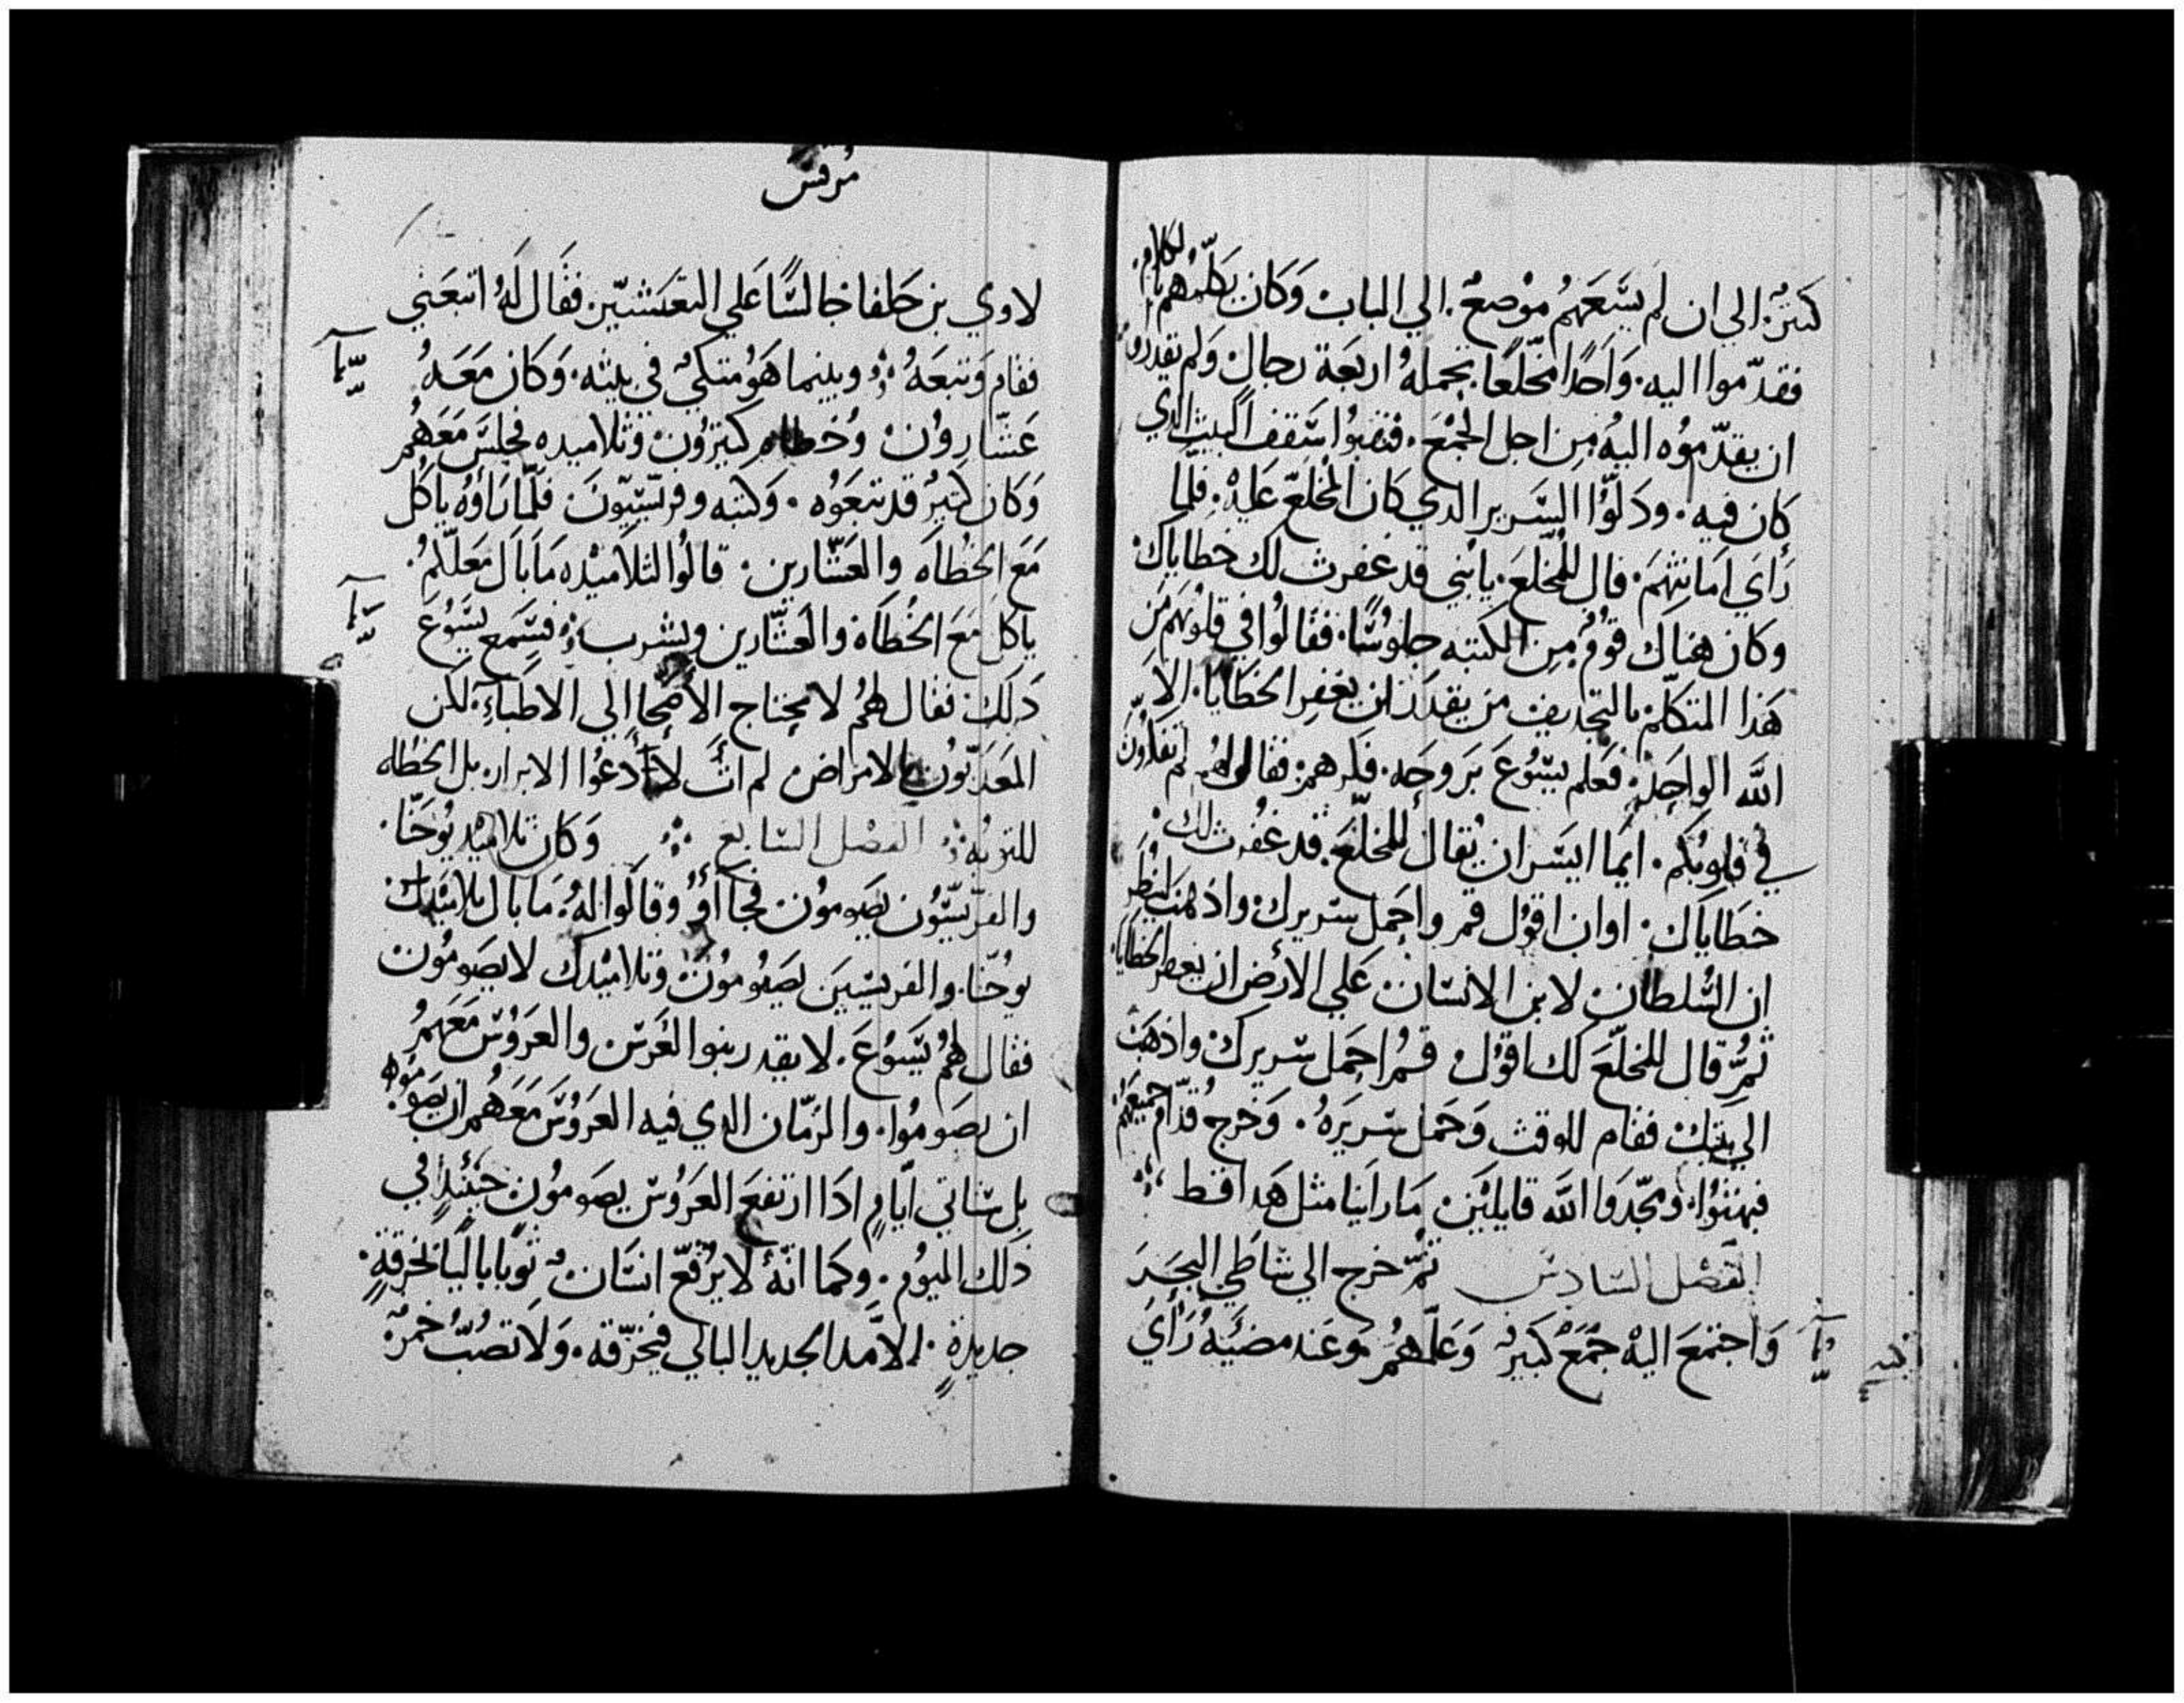 كتير. الي ان لم يسَعَهمُ موْضعٌ. الي الباب وَكان يكلّمُهم بالكلام.
فقدّموا اليه. وَاحدًا مخلّعًا يحملهُ اربَعَة رجال وَلم يقدروا
ان يقدّموُه اليهُ مِن اجل الجمْعَ. فنقبوُا سَقف البيت الدي
كان فيه. ودَلوّا السَرير الدي كان المخلّع عَليهْ. فلما
رَأيَ امَانتهمَ. قال للمخلّعَ. يا بُني قد غفرت لك خطاياك.
وكان هناك قوُمٌ مِن الكتبه جلوسًا. فقالوُا في قلوُبهَم مَن
هَذا المتكلّم بالتجديف مَن يقدرَ ان يغفِر الخطَايَا. الاّ
الله الواحِد. فعَلم يسّوُعَ برَوحَه. فكرهم. فقال لهم لم تفكرُونَ
في قلوبُكم. ايمَا ايسَر ان يُقال للمخلّعَ. قد غفُرت لك
خطَاياك. اوان اقوُل قم واحمَل سَريرك واذهبَ لينظُر
ان السُلطان لابن الانسَان عَلي الأرض ان يغفر الخطايا.
ثمُّ قال للمخلّعَ لك اقوُل قمُ احمَل سَريركْ واذهَبْ
الي بيتِكْ فقام للوقت وَحمَل سَريرَهُ. وَخرج قُدّام جميعَهمُ.
فبهتوُا. ومجّدوَا الله قايلينَ مَا رَاينا مثل هَدا قط
الفصْل السَادسْ ثمُّ خرج الي شاطَي البحَر
وَاجتمَعَ اليهْ جمْعٌ كبيرٌ وَعَلّمهُم وَعَند مضيّهُ رَأيَ
مُرقسَ
لاوي بن حَلفا جالسًا عَلي التعَشيرّ. فقَال لَهُ اتبعَني
فقام وَتبعَهُ. وبينما هَوُ متكئٌ في بيته. وَكان مَعَهُ
عَشّاروُن وُخطاه كتيرُون وَتلاميده فجلسَ مَعَهُم
وَكان كتيرٌ قد تبعَوُه. وَكتبه وفرّيسيّونَ فلمّا رَاؤهُ ياكُل
مَعَ الخُطاه والعَشّارين. قالوُا لتلاميْده مَا بَال مَعَلّمكمُ.
ياكل مَعَ الخُطَاة والعَشّارين ويشرب. فسَمع يسَوُعَ
دَلك فقال لهمُ لا يحتاج الأصحا الي الاطبآءِ. لكن
المعَدبّوُن بالامرَاض. لم آت لأدعُوا الابرار. بل الخطاه
للتوبُه. الفصْل السَابع وَكان تلاميْد يوُحَنّا.
والفرّيسيّوُن يصَوموُن فجاأوُ وقالوُا لهُ. مَا بَال تلامَيْد
يوُحنّا. والفريسيّينَ يصَوُموُنْ وَتلاميْدك لا يصَوموُن
فقال لهُم يسَوُعَ. لا يقدر بنوا العُرسْ والعَروُسْ مَعَهمُ
ان يصَوموُا. والزمّان الدي فيه العَروُسَ مَعَهُم ان يصَوموُه
بل سَتاتي ايّامٍ ادَا ارتفعَ العَروُسْ يصَوموُن حينئدٍ في
دَلك اليوُم. وكما انّهُ لا يرُقّع انسَانٌ ثوبًا باليًا بخرقةٍ.
جديدةٍ. لا الجديد البالي فيخرّقه. وَلا تصُبُّ خمرٌ